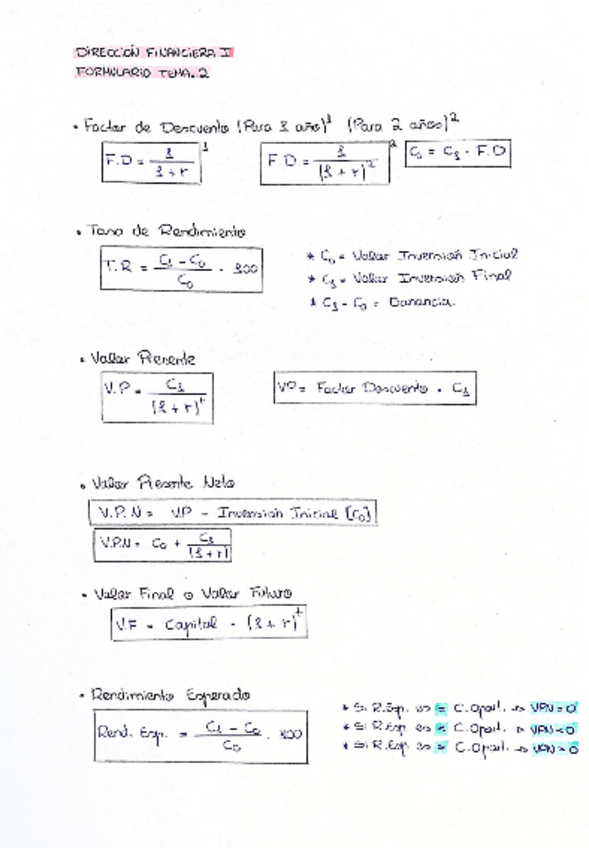 DIRECCIÓN FINANCIERA I
FORMULARIO TEMA. 2
• Factor de Descuento (Para 1 año)¹ (Para 2 años)²
F.D = 1 / (1 + r) ¹
F.D = 1 / (1 + r)² ²
C₀ = C₁ · F.D
• Tasa de Rendimiento
T.R = (C₁ - C₀) / C₀ · 100
* C₀ = Valor Inversión Inicial
* C₁ = Valor Inversión Final
* C₁ - C₀ = Ganancia.
• Valor Presente
V.P = C₁ / (1 + r)ᵗ
VP = Factor Descuento · C₁
• Valor Presente Neto
V.P.N = V.P - Inversión Inicial [C₀]
V.P.N = C₀ + C₁ / (1 + r)
• Valor Final o Valor Futuro
V.F = Capital · (1 + r)ᵗ
• Rendimiento Esperado
Rend. Esp. = (C₁ - C₀) / C₀ · 100
* Si R.Esp. es = C.Oport. → VPN = 0
* Si R.Esp es C.Oport. → VPN < 0
* Si R.Esp es C.Oport. → VPN 0